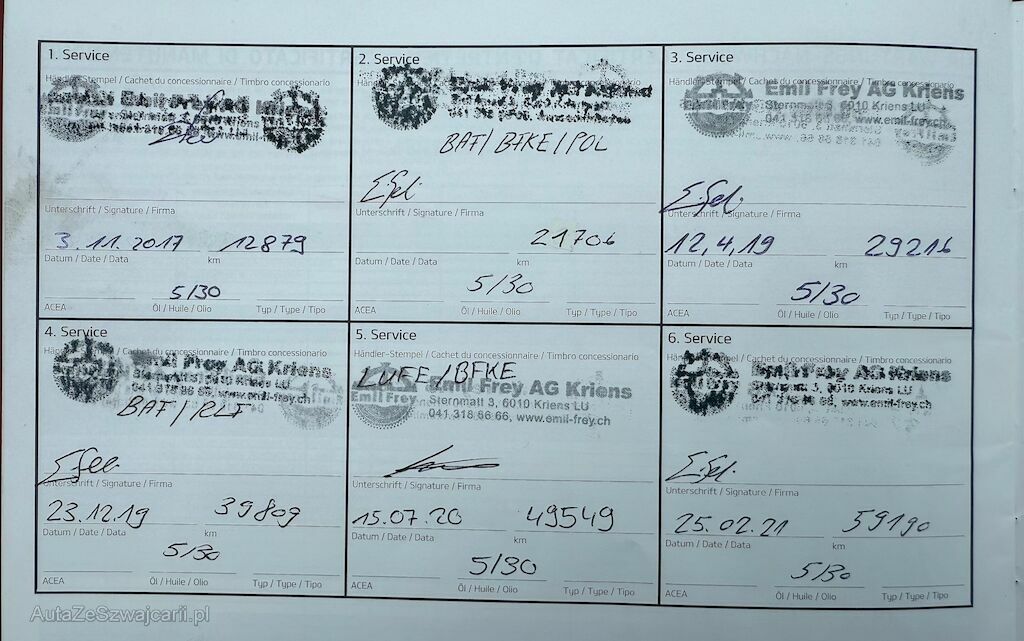 1. Service
Händler-Stempel / Cachet du concessionnaire / Timbro concessionario
Unterschrift / Signature / Firma
3.11.2017 12879
Datum / Date / Data km
5/30
ACEA Öl / Huile / Olio Typ / Type / Tipo
2. Service
BAT/BFKE/POL
Unterschrift / Signature / Firma
21706
Datum / Date / Data km
5/30
ACEA Öl / Huile / Olio Typ / Type / Tipo
3. Service
Händler-Stempel / Cachet du concessionnaire / Timbro concessionario
Emil Frey AG Kriens
Emil Frey Sternmatt 3, 6010 Kriens LU
041 318 66 66, www.emil-frey.ch
Unterschrift / Signature / Firma
12,4,19 29216
Datum / Date / Data km
5/30
ACEA Öl / Huile / Olio Typ / Type / Tipo
4. Service
Händler-Stempel / Cachet du concessionnaire / Timbro concessionario
Emil Frey AG Kriens
Sternmatt 3, 6010 Kriens LU
041 318 66 66, www.emil-frey.ch
Unterschrift / Signature / Firma
23.12.19 39809
Datum / Date / Data km
5/30
ACEA Öl / Huile / Olio Typ / Type / Tipo
5. Service
Händler-Stempel / Cachet du concessionnaire / Timbro concessionario
LUFF/BFKE
Emil Frey AG Kriens
Emil Frey Sternmatt 3, 6010 Kriens LU
041 318 66 66, www.emil-frey.ch
Unterschrift / Signature / Firma
15.07.20 49549
Datum / Date / Data km
5/30
ACEA Öl / Huile / Olio Typ / Type / Tipo
6. Service
Händler-Stempel / Cachet du concessionnaire / Timbro concessionario
Emil Frey AG Kriens
Sternmatt 3, 6010 Kriens LU
041 318 66 66, www.emil-frey.ch
Unterschrift / Signature / Firma
25.02.21 59190
Datum / Date / Data km
5/30
ACEA Öl / Huile / Olio Typ / Type / Tipo
AutaZeSzwajcarii.pl